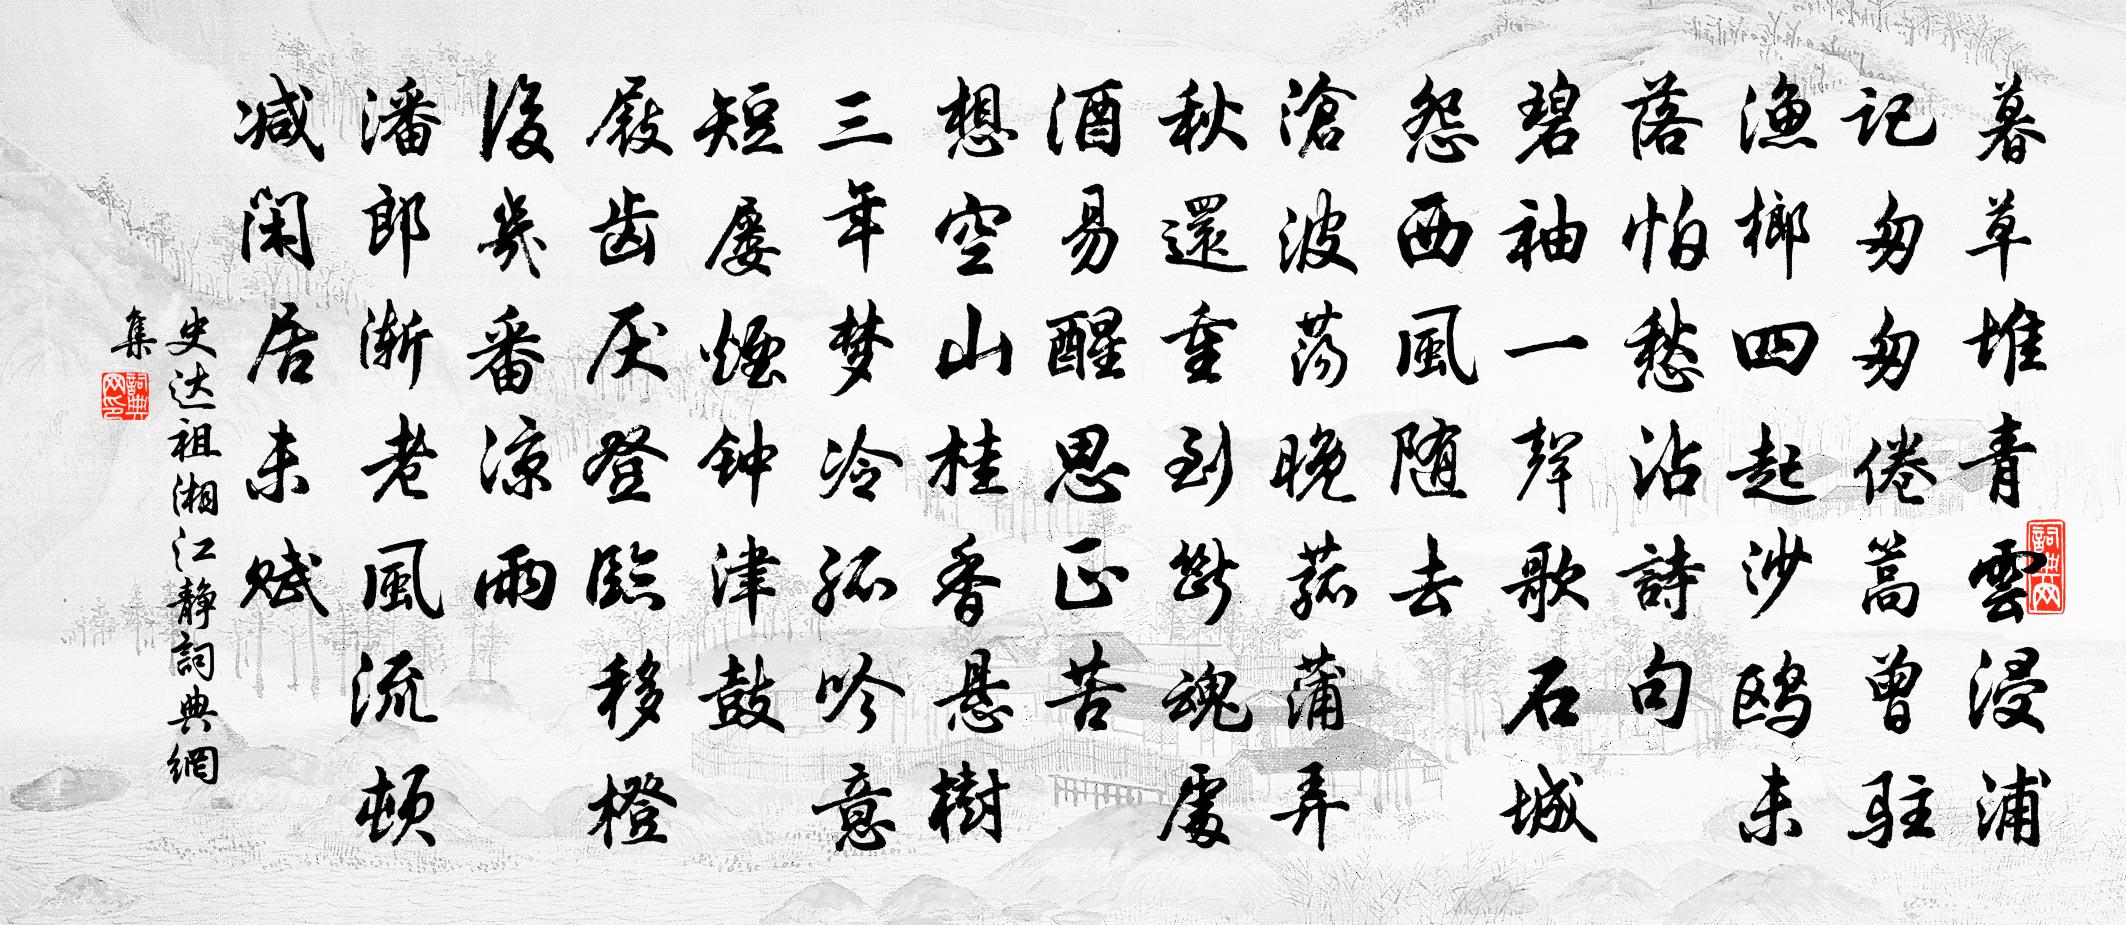 暮草堆青雲浸浦
记匆匆倦篙曾驻
渔榔四起沙鸥未
落怕愁沾詩句
碧袖一聲歌石城
怨西風随去
滄波荡晚菰蒲弄
秋還重到断魂處
酒易醒思正苦
想空山桂香悬樹
三年梦冷孤吟意
短屡煙钟津鼓
屐齿厌登臨移橙
後幾番凉雨
潘郎渐老風流顿
减闲居未赋
史达祖湘江静詞典網
集
詞典网
詞典网印